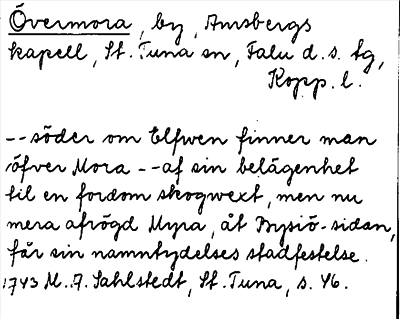 Övermora, by, Amsbergs
kapell, St. Tuna sn, Falu d.s. tg,
Kopp. l.
--söder om Elfwen finner man
öfver Mora --af sin belägenhet
til en fordom skogwext, men nu
mera afrögd Myra, åt Bysiö-sidan,
får sin namntydelses stadfestelse.
1743 M.A. Sahlstedt, St. Tuna, s. 46.